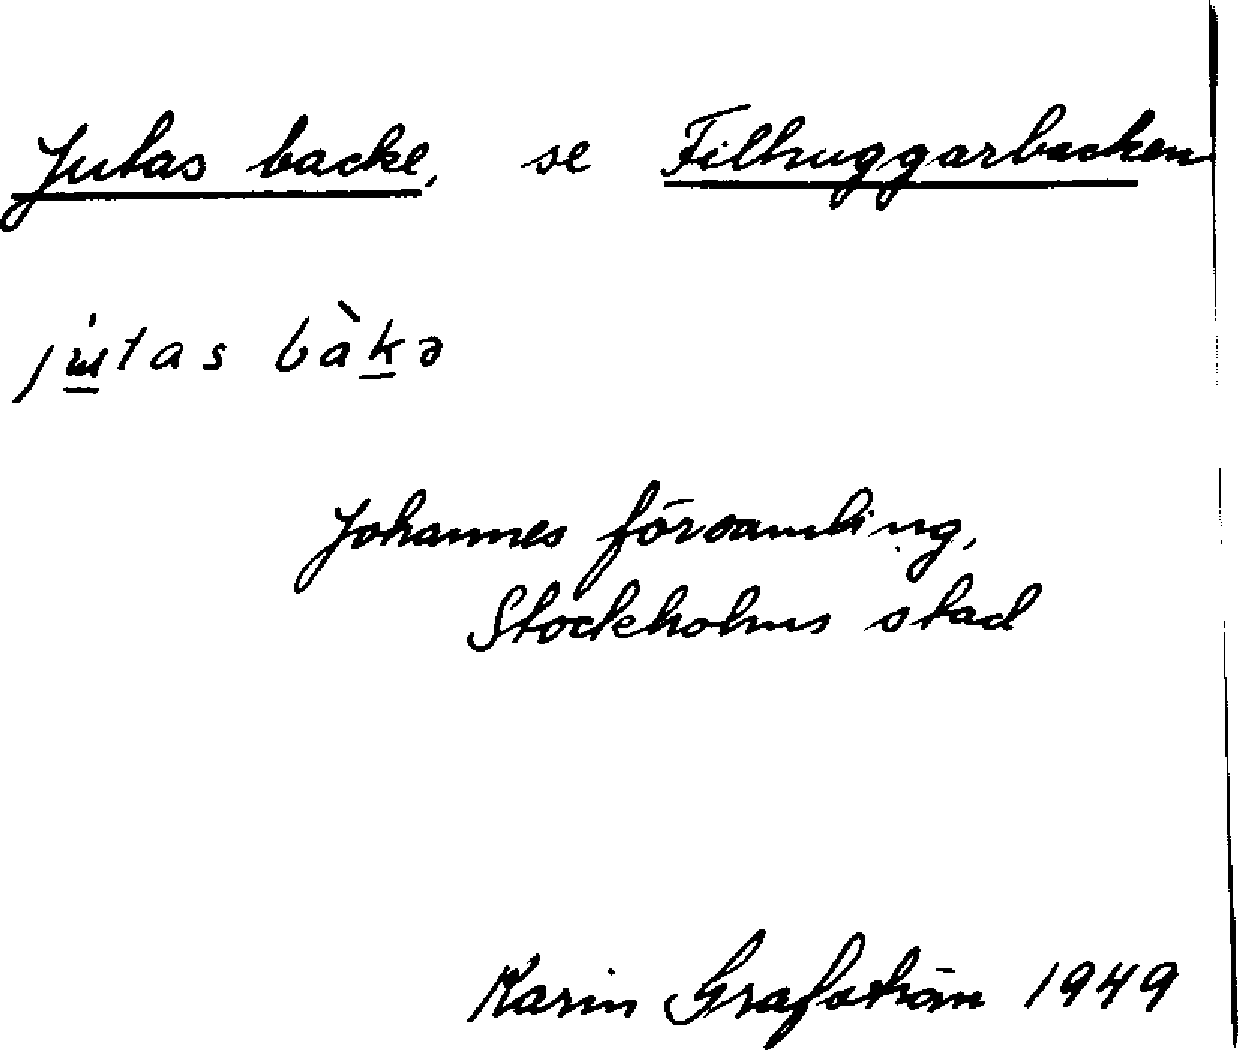 Jutas backe, se Filhuggarbacken
jɯ́tas bàkə
Johannes församling,
Stockholms stad
Karin Grafström 1949